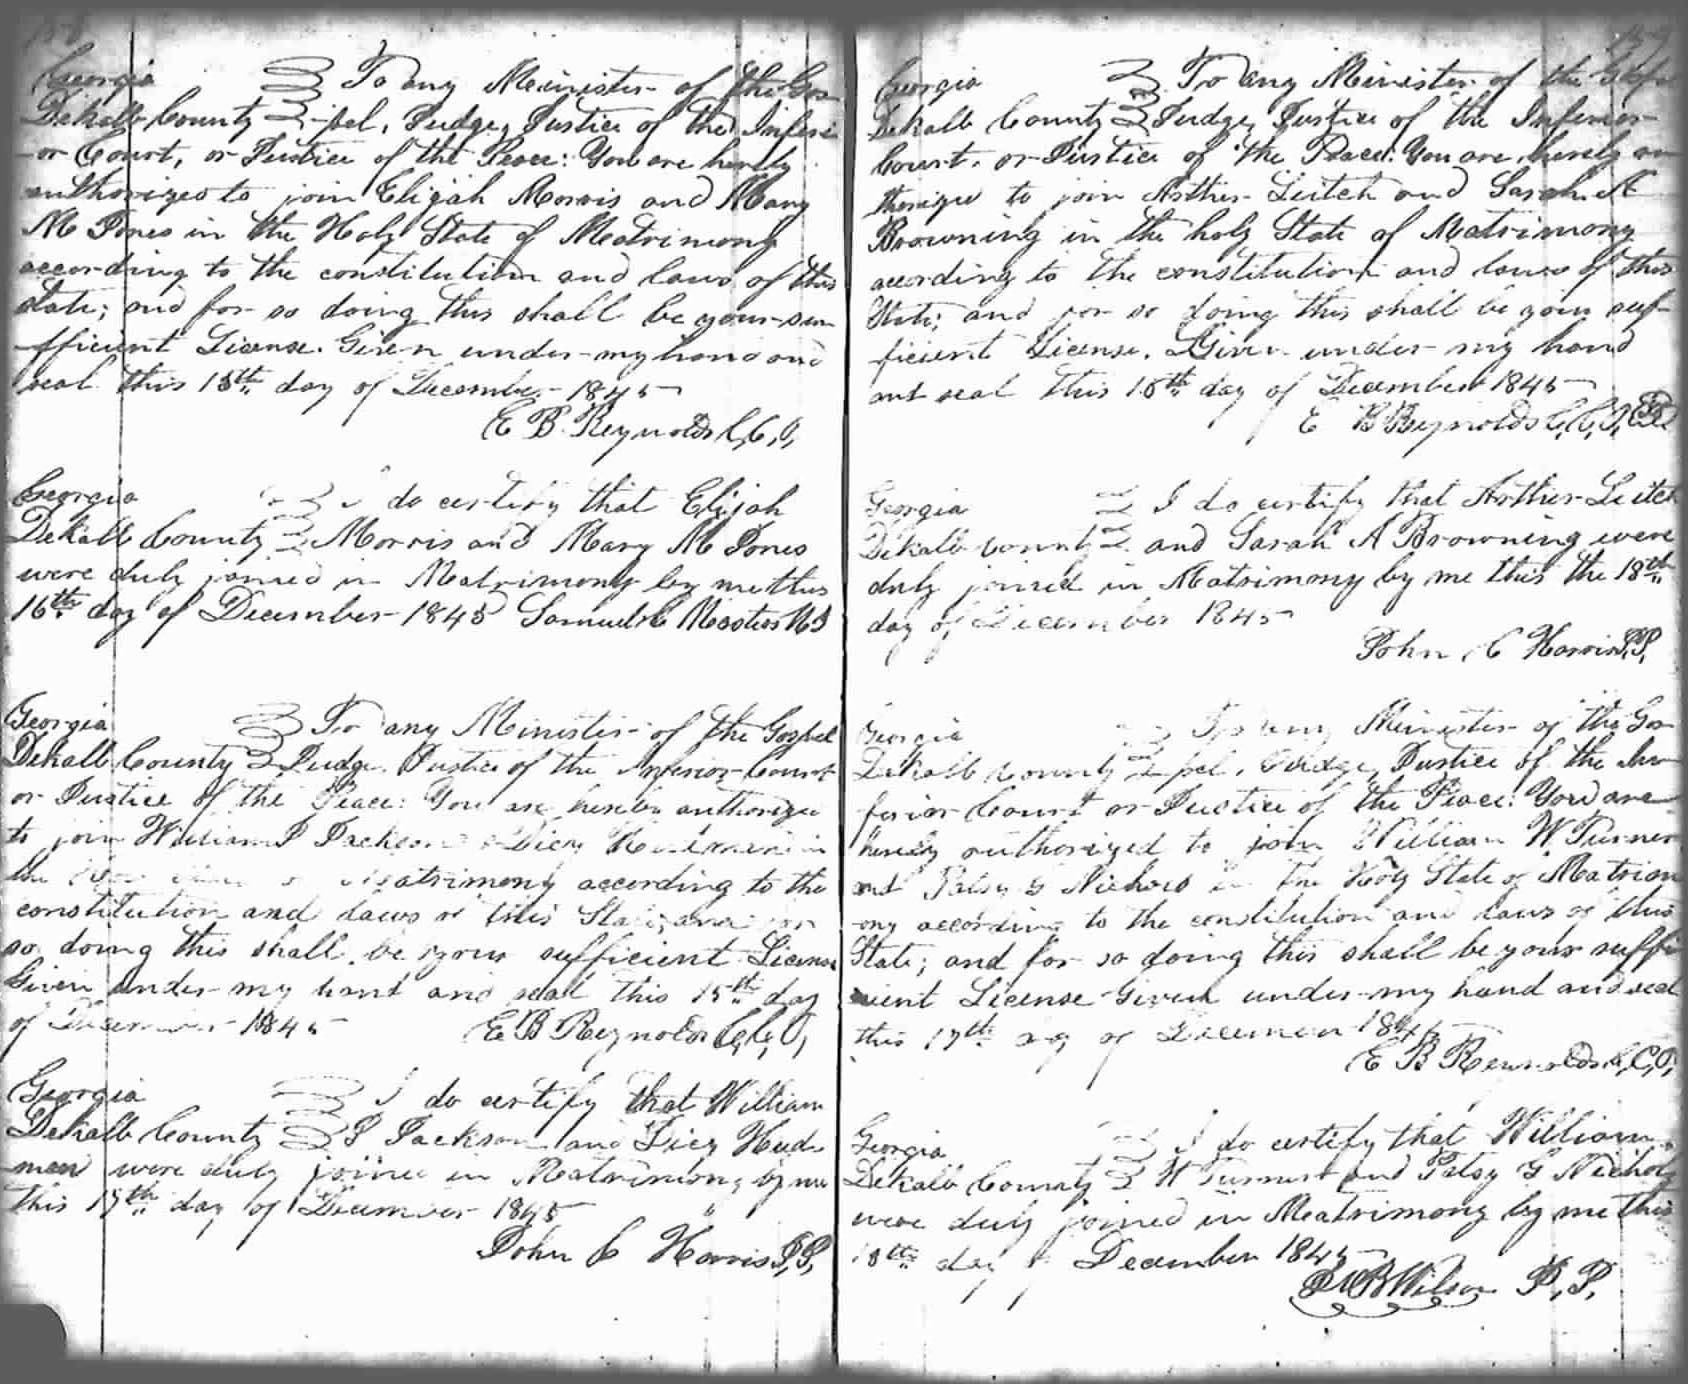 158
Georgia To any Minister of the Gos-
Dekalb County -pel, Judge, Justice of the Inferi-
-or Court, or Justice of the Peace: You are hereby
authorized to join Elijah Morris and Mary
M Jones in the Holy State of Matrimony
according to the constitution and laws of this
State; and for so doing this shall be your su-
-fficient License. Given under my hand and
seal this 15th day of December 1845
E B. Reynolds C,C,O,
Georgia I do certify that Elijah
Dekalb County Morris and Mary M Jones
were duly joined in Matrimony by me this
16th day of December 1845 Samuel
Georgia To any Minister of the Gospel
Dekalb County Judge, Justice of the Inferior Court
or Justice of the Peace: You are hereby authorize
to join William J Jackson Dicy
the Matrimony according to the
constitution and laws of this State; and for
so doing this shall be your sufficient License
Given under my hand and seal this 15th day
of December 1845 E B Reynolds C,C,O,
Georgia I do certify that William
Dekalb County J Jackson and Dicy Hud-
man were duly joined in Matrimony by me
this 17th day of December 1845
John C Harris J,P,
159
Georgia To any Minister of the Gospel
Dekalb County Judge, Justice of the Inferior
Court, or Justice of the Peace: You are hereby au
thorize to join Arther Leitch and Sarah A
Browning in the holy State of Matrimony
according to the constitution and laws of this
State; and for so doing this shall be your suf-
ficient License. Given under my hand
and seal this 18th day of December 1845
E B Reynolds C,C,O,
Georgia I do certify that Arther Leitch
Dekalb County and Sarah A Browning were
duly joined in Matrimony by me this the 18th
day of December 1845
John C Harris J,P,
Georgia To any Minister of the Gos
Dekalb County -pel, Judge, Justice of the In
ferior Court or Justice of the Peace: You are
hereby authorized to join William W. Turner
and Patsy G Nichols in the Holy State of Matrim
-ony according to the constitution and laws of this
State; and for so doing this shall be your suffi
cient License Given under my hand and seal
this 17th day of December 1845
E B Reynolds C,C,O,
Georgia I do certify that William
Dekalb County W Turner and Patsy G Nichols
were duly joined in Matrimony by me this
18th day of December 1845
Wilson J,P,